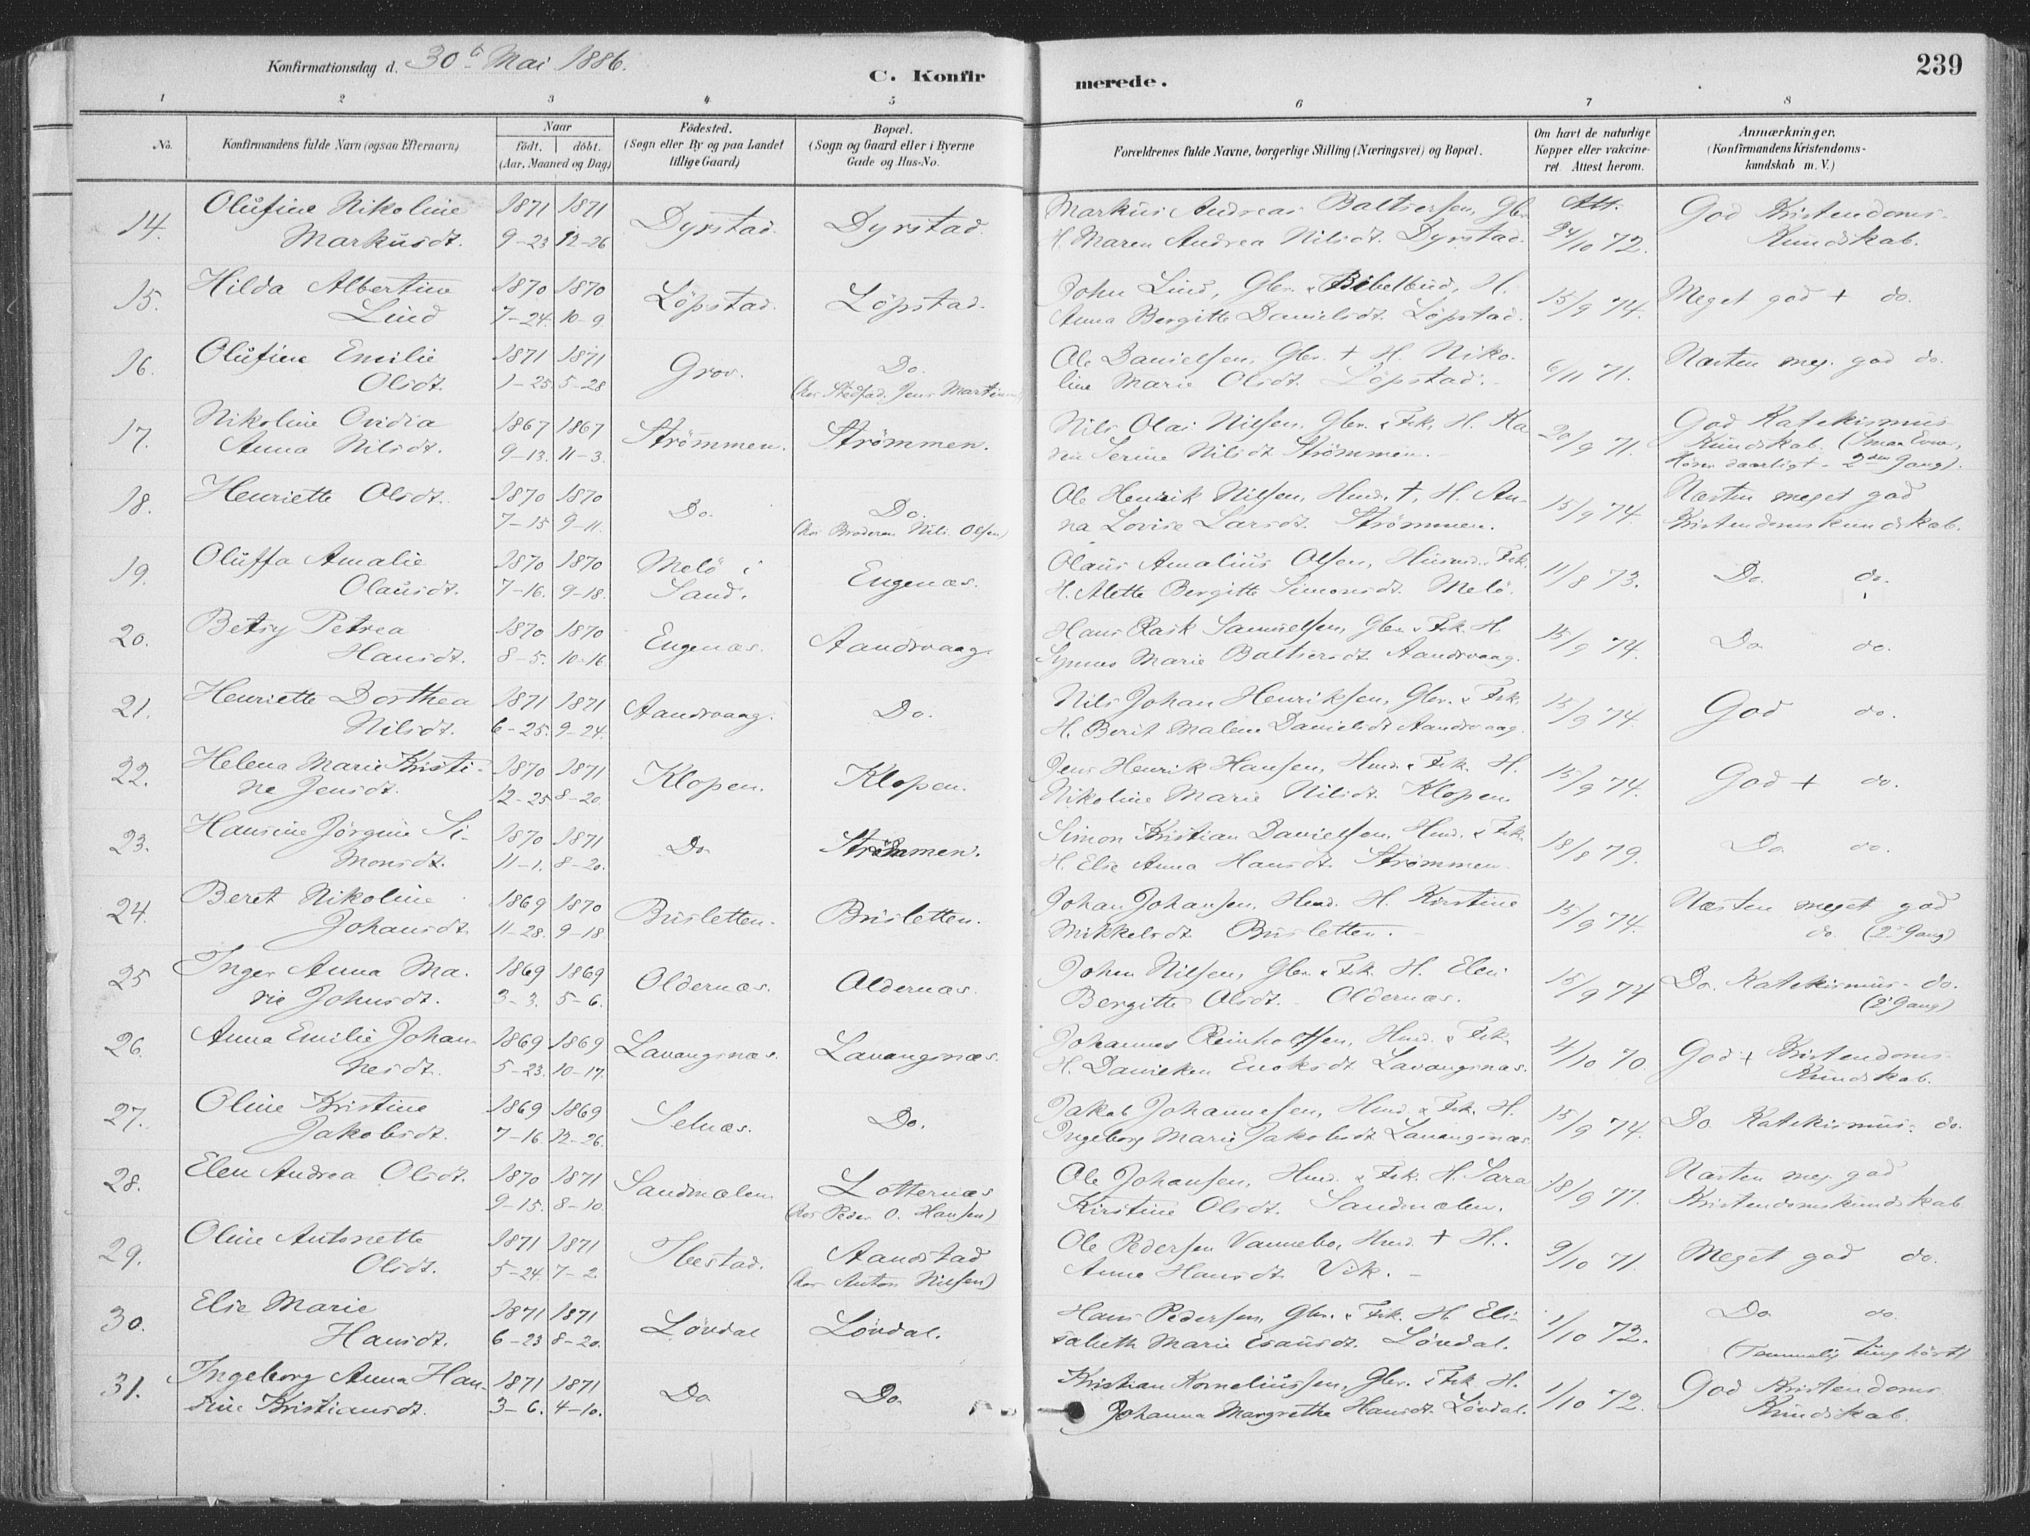 Konfirmationsdag d. 30te Mai 1886.
C. Konfirmerede.
239
1 2 3 4 5 6 7 8
No.
Konfirmandens fulde Navn (ogsaa Efternavn)
Naar
født. | døbt.
(Aar, Maaned og Dag)
Fødested.
(Sogn eller By og paa Landet
tillige Gaard)
Bopæl.
(Sogn og Gaard eller i Byerne
Gade og Hus-No.
Forældrenes fulde Navne, borgerlige Stilling (Næringsvei) og Bopæl.
Om havt de naturlige
Kopper eller vakcine-
ret. Attest herom.
Anmærkninger.
(Konfirmandens Kristendoms-
kundskab m. V.)
14. Olufine Nikoline 1871 1871 Dyrstad. Dyrstad. Markus Andreas Baltsersen, Gbr. Att. God Kristendoms-
Markusdt. 9-23 12-26 H. Maren Andrea Nilsdt. Dyrstad. 24/10 72. Kundskab.
15. Hilda Albertine 1870 1870 Løpstad. Løpstad. John Lind, Gbr. & Bibelbud, H. 15/9 74. Meget god + do.
Lind 7-24. 10-9 Anna Bergitte Danielsdt. Løpstad.
16. Olufine Emilie 1871 1871 Grov. Do. Ole Danielsen, Gbr. + H. Niko- 6/11 71. Næsten meg. god do.
Olsdt. 1-25 5-28 (hos Stedfad. Jens Martin) line Marie Olsdt. Løpstad.
17. Nikoline Ovidia 1867 1867 Strømmen. Strømmen. Nils Olai Nilsen, Gbr. & Fsk. H. Ka- 20/9 71. God Katekismus
Anna Nilsdt. 9-13. 11-3. ren Serine Nilsdt Strømmen. Kundskab. (Smaa Evner,
Hører daarligt. 2den Gang).
18. Henriette Olsdt. 1870 1870 Do. Do. Ole Henrik Nilsen, Hmd. +, H. An- 15/9 74. Næsten meget god
7-15 9-11. (hos Broderen Nils Olsen) na Lovise Larsdt. Strømmen. Kristendomskundskab.
19. Oluffa Amalie 1870 1870 Melø i Engenæs. Olaus Amalius Olsen, Husmd. & Fsk. 11/8 73. Do. do.
Olausdt. 7-16. 9-18. Sand. H. Alette Bergitte Simonsdt. Melø.
20. Betsy Petrea 1870 1870 Engenæs. Aandsvaag. Hans Rask Samuelsen, Gbr. & Fsk. H. 15/9 74. Do. do.
Hansdt. 8-5. 10-16. Marie Baltsersdt Aandsvaag.
21. Henriette Dorthea 1871 1871 Aandsvaag. Do. Nils Johan Henriksen, Gbr. & Fsk. 15/9 74. God do.
Nilsdt. 6-25. 9-24. H. Berit Malene Danielsdt Aandsvaag.
22. Helena Marie Kristi- 1870 1871 Klopen. Klopen. Jens Henrik Hansen, Hmd. & Fsk. H. 15/9 74. God + do.
ne Jensdt. 12-25 8-20. Nikoline Marie Nilsdt Klopen
23. Hansine Jørgine Si- 1870 1871 Do Strømmen. Simon Kristian Danielsen, Hmd. & Fsk. 18/8 79. Do. do.
monsdt. 11-1. 8-20. H. Else Anna Hansdt. Strømmen
24. Beret Nikoline 1869 1870 Brisletten. Brisletten. Johan Johansen, Hmd. H. Kirstine 15/9 74. Næsten meget god
Johansdt 11-28. 9-18. Mikkelsdt Brisletten. do. (2' Gang)
25 Inger Anna Ma- 1869 1869 Oldernæs. Oldernæs. John Nilsen, Gbr. & Fsk. H. Elen 15/9 74 Do. Katekismus- do.
rie Johnsdt. 3-3. 5-6. Bergitte Olsdt. Oldernæs. (2' Gang)
26. Anna Emilie Johan- 1869 1869 Lavangsnæs. Lavangsnæs. Johannes Reinholtsen, Hmd. & Fsk. 4/10 70. God + Kristendoms-
nesdt. 5-23. 10-17. H. Daniken Enoksdt Lavangsnæs. Kundskab.
27. Oline Kristine 1869 1869 Selnæs. Do. Jakob Johannesen, Hmd. & Fsk. H. 15/9 74. Do. Katekismus- do.
Jakobsdt. 7-16. 12-26. Ingeborg Marie Jakobsdt Lavangsnæs
28. Elen Andrea Olsdt. 1870 1871 Sandmælen Lotternæs Ole Johansen, Hmd. & Fsk. H. Sara 18/9 77. Næsten meg. god
9-15. 8-10. (hos Peder O. Hansen) Kirstine Olsdt. Sandmælen. Kristendomskundskab
29. Oline Antonette 1871 1871 Ibestad. Aandstad Ole Pedersen Vannebo, Hmd. + H. 9/10 71. Meget god do.
Olsdt. 5-24. 7-2. (hos Anton Nilsen) Anne Hansdt. Vik.
30. Else Marie 1871 1871 Løvdal Løvdal. Hans Pedersen, Gbr. & Fsk. H. Eli- 1/10 72. Do. do.
Hansdt. 6-23 8-20. sabeth Marie Esausdt. Løvdal. (Temmelig tunghørt)
31. Ingeborg Anna Han- 1871 1871 Do Do. Kristian Korneliussen, Gbr. & Fsk. H. 1/10 72. God Kristendoms-
sine Kristiansdt. 3-6. 4-10. Johanna Margrethe Hansdt. Løvdal. Kundskab.